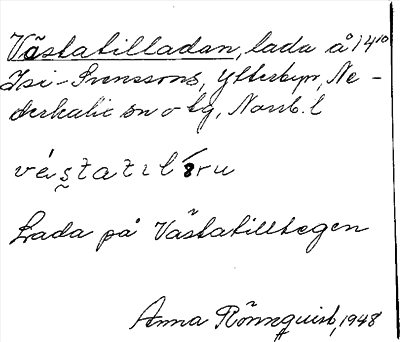 Västatilladan, lada å 14¹⁰
Isi-Svenssons, Ytterbyn, Ne-
derkalix sn o tg, Norrb. l
Lada på Västatilltegen
Anna Rönnquist, 1948